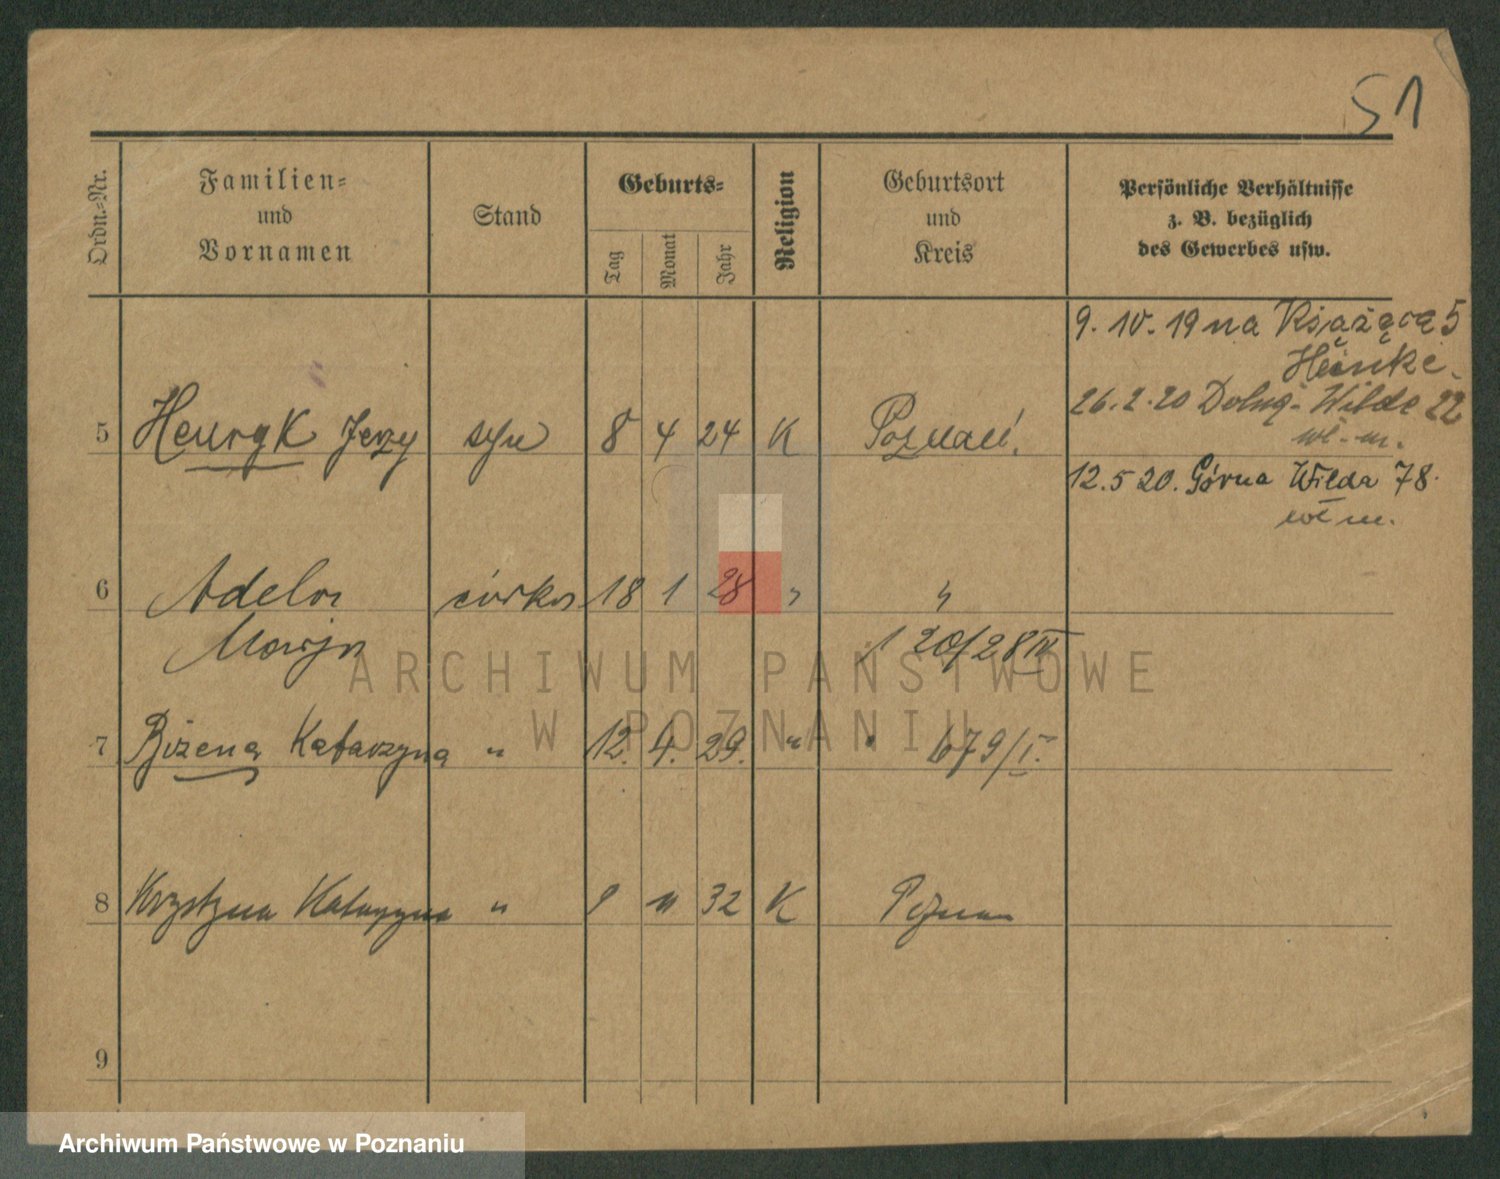 51
Ordn.-Nr.
Familien-
und
Vornamen
Stand
Geburts-
Tag
Monat
Jahr
Religion
Geburtsort
und
Kreis
Persönliche Verhältnisse
z. B. bezüglich
des Gewerbes usw.
9. IV. 19 na Książęcą 5
Heinke.
26.2.20 Dolną-Wildę 22
wł. m.
5 Henryk Jerzy syn 8 4 24 K Poznań.
12.5 20. Górna Wilda 78.
wł m.
6 Adela córka 18 1 28 " "
Marja 120/28 IV
7 Bożena Katarzyna " 12. 4. 29. " " 679/I.
8 Krystyna Katarzyna " 9 11 32 K Poznań
9
ARCHIWUM PAŃSTWOWE
W POZNANIU
Archiwum Państwowe w Poznaniu